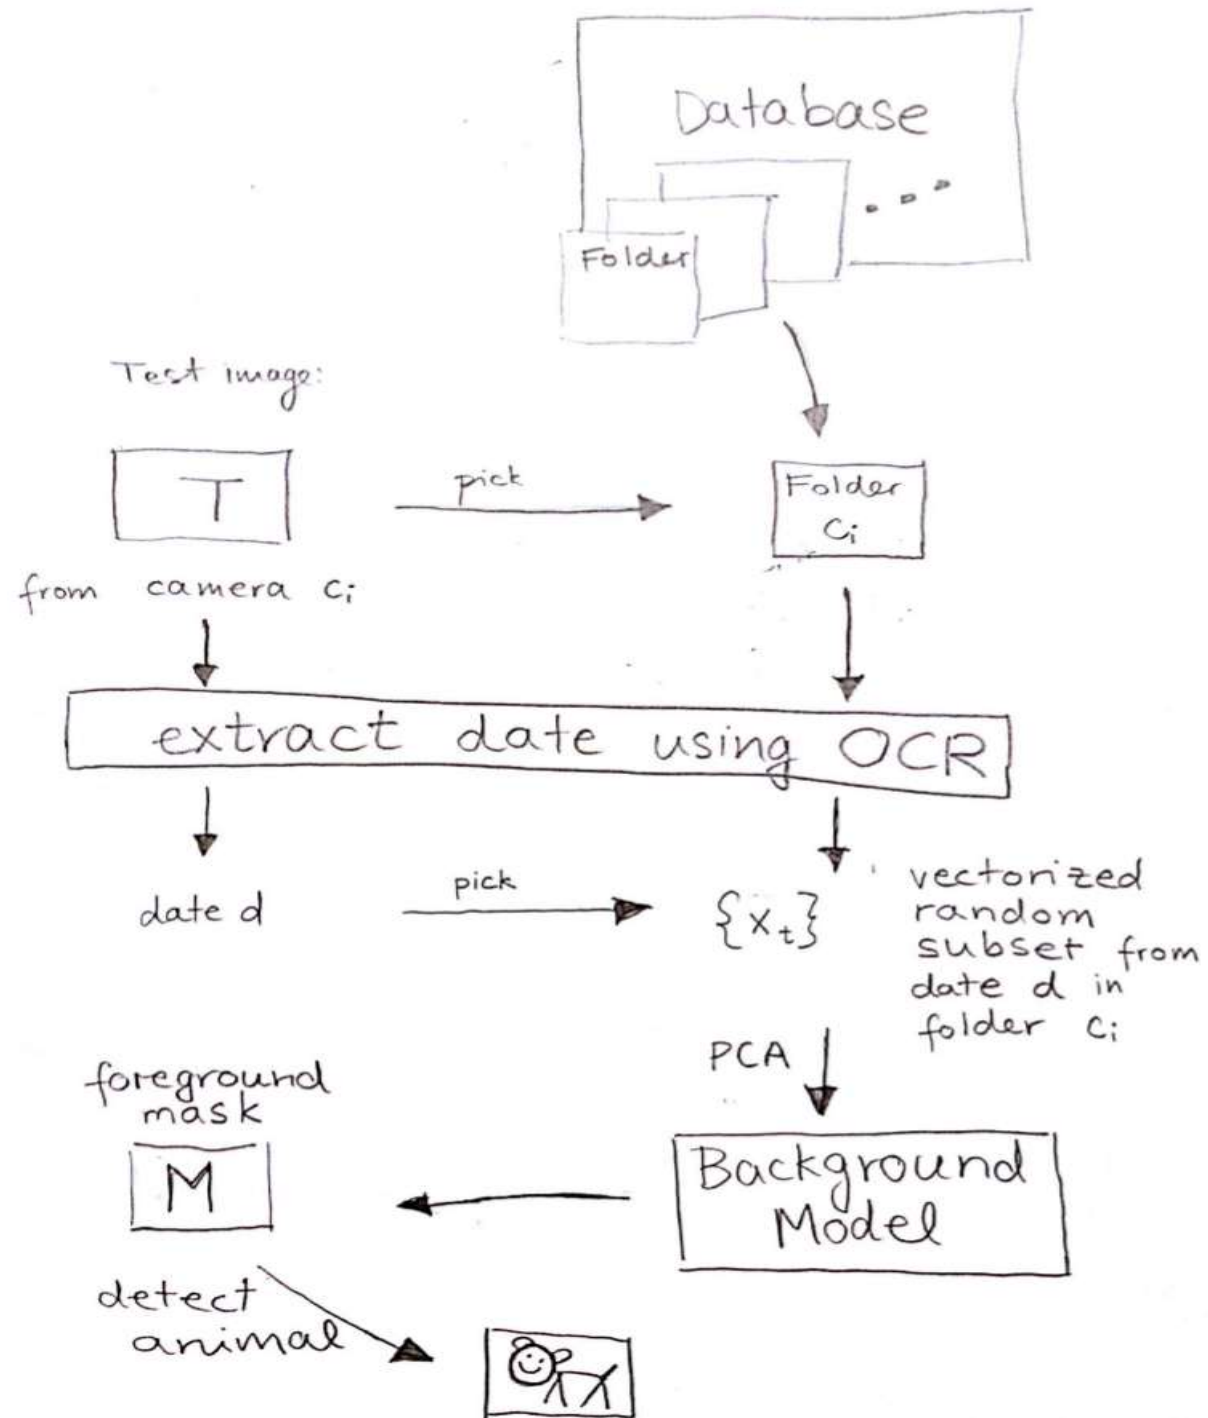 Database
Folder
Test image:
T
pick
Folder
Ci
from camera Ci
extract date using OCR
date d
pick
{x_t}
vectorized
random
subset from
date d in
folder Ci
PCA
foreground
mask
M
Background
Model
detect
animal